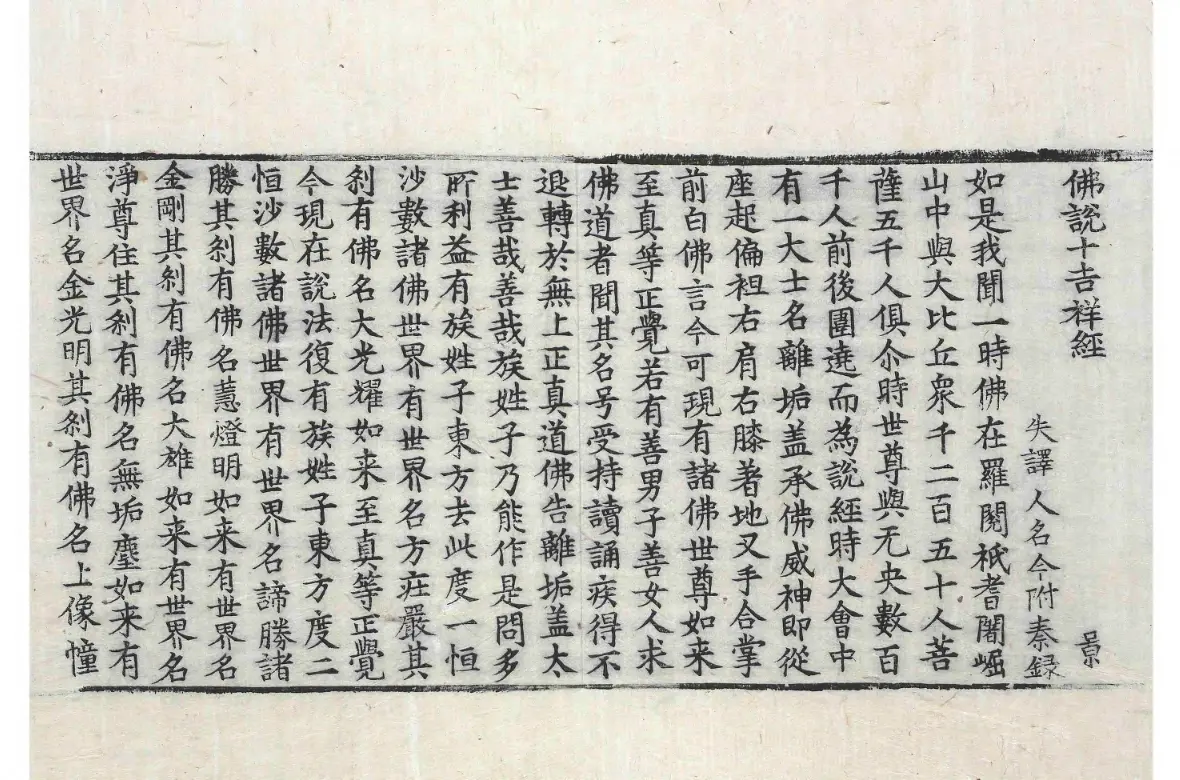 佛說十吉祥經
失譯人名今附秦録　景
如是我聞一時佛在羅閱祇耆闍崛
山中與大比丘衆千二百五十人菩
薩五千人俱尒時世尊與无央數百
千人前後圍遶而為說經時大會中
有一大士名離垢盖承佛威神即從
座起偏袒右肩右膝著地叉手合掌
前白佛言今可現有諸佛世尊如来
至真等正覺若有善男子善女人求
佛道者聞其名号受持讀誦疾得不
退轉於無上正真道佛告離垢盖太
士善哉善哉族姓子乃能作是問多
所利益有族姓子東方去此度一恒
沙數諸佛世界有世界名方莊嚴其
刹有佛名大光耀如来至真等正覺
今現在說法復有族姓子東方度二
恒沙數諸佛世界有世界名諦勝諸
勝其刹有佛名慧燈明如来有世界名
金剛其刹有佛名大雄如来有世界名
淨尊住其刹有佛名無垢塵如来有
世界名金光明其刹有佛名上像幢